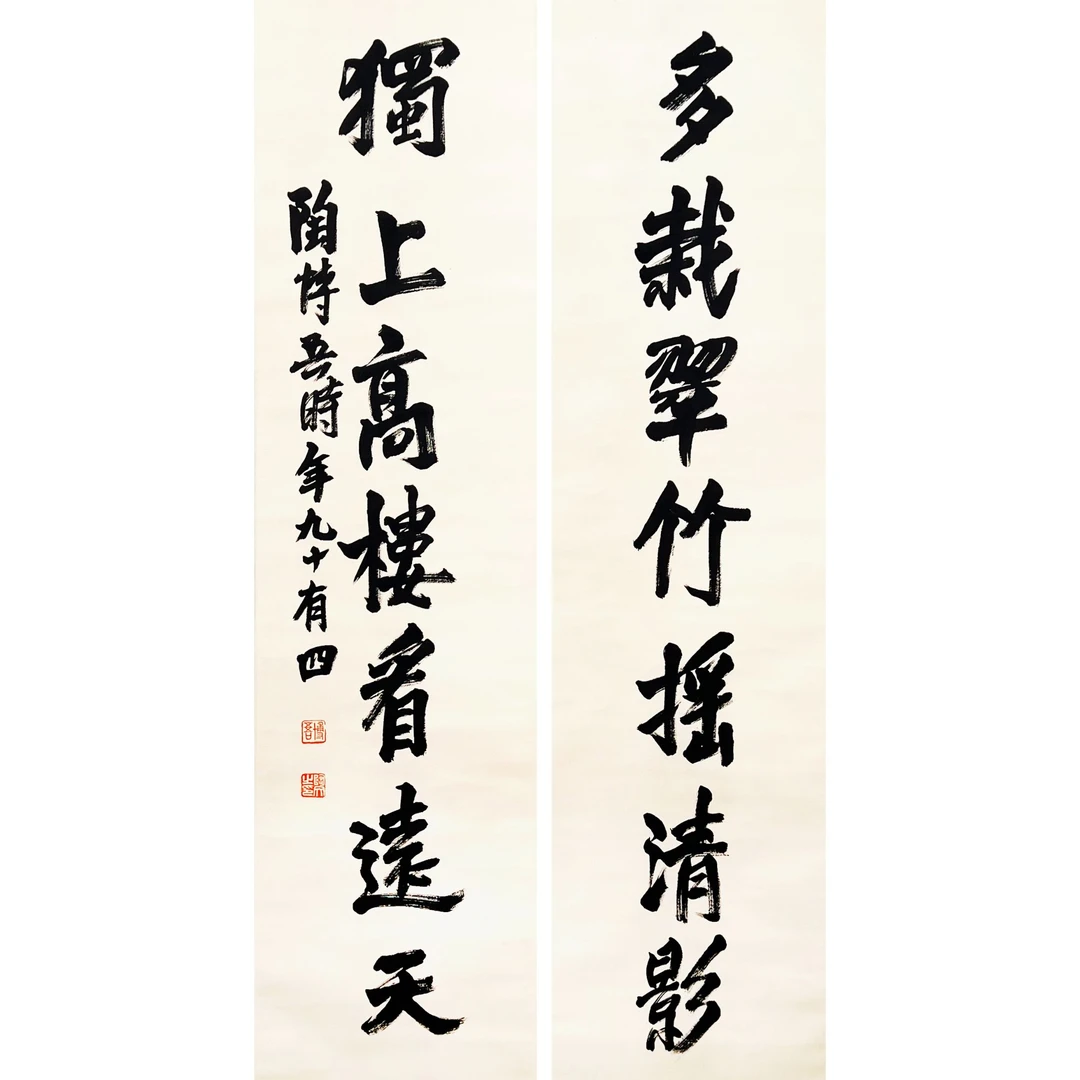 多栽翠竹搖清影
獨上高樓看遠天
陶博吾時年九十有四
博吾